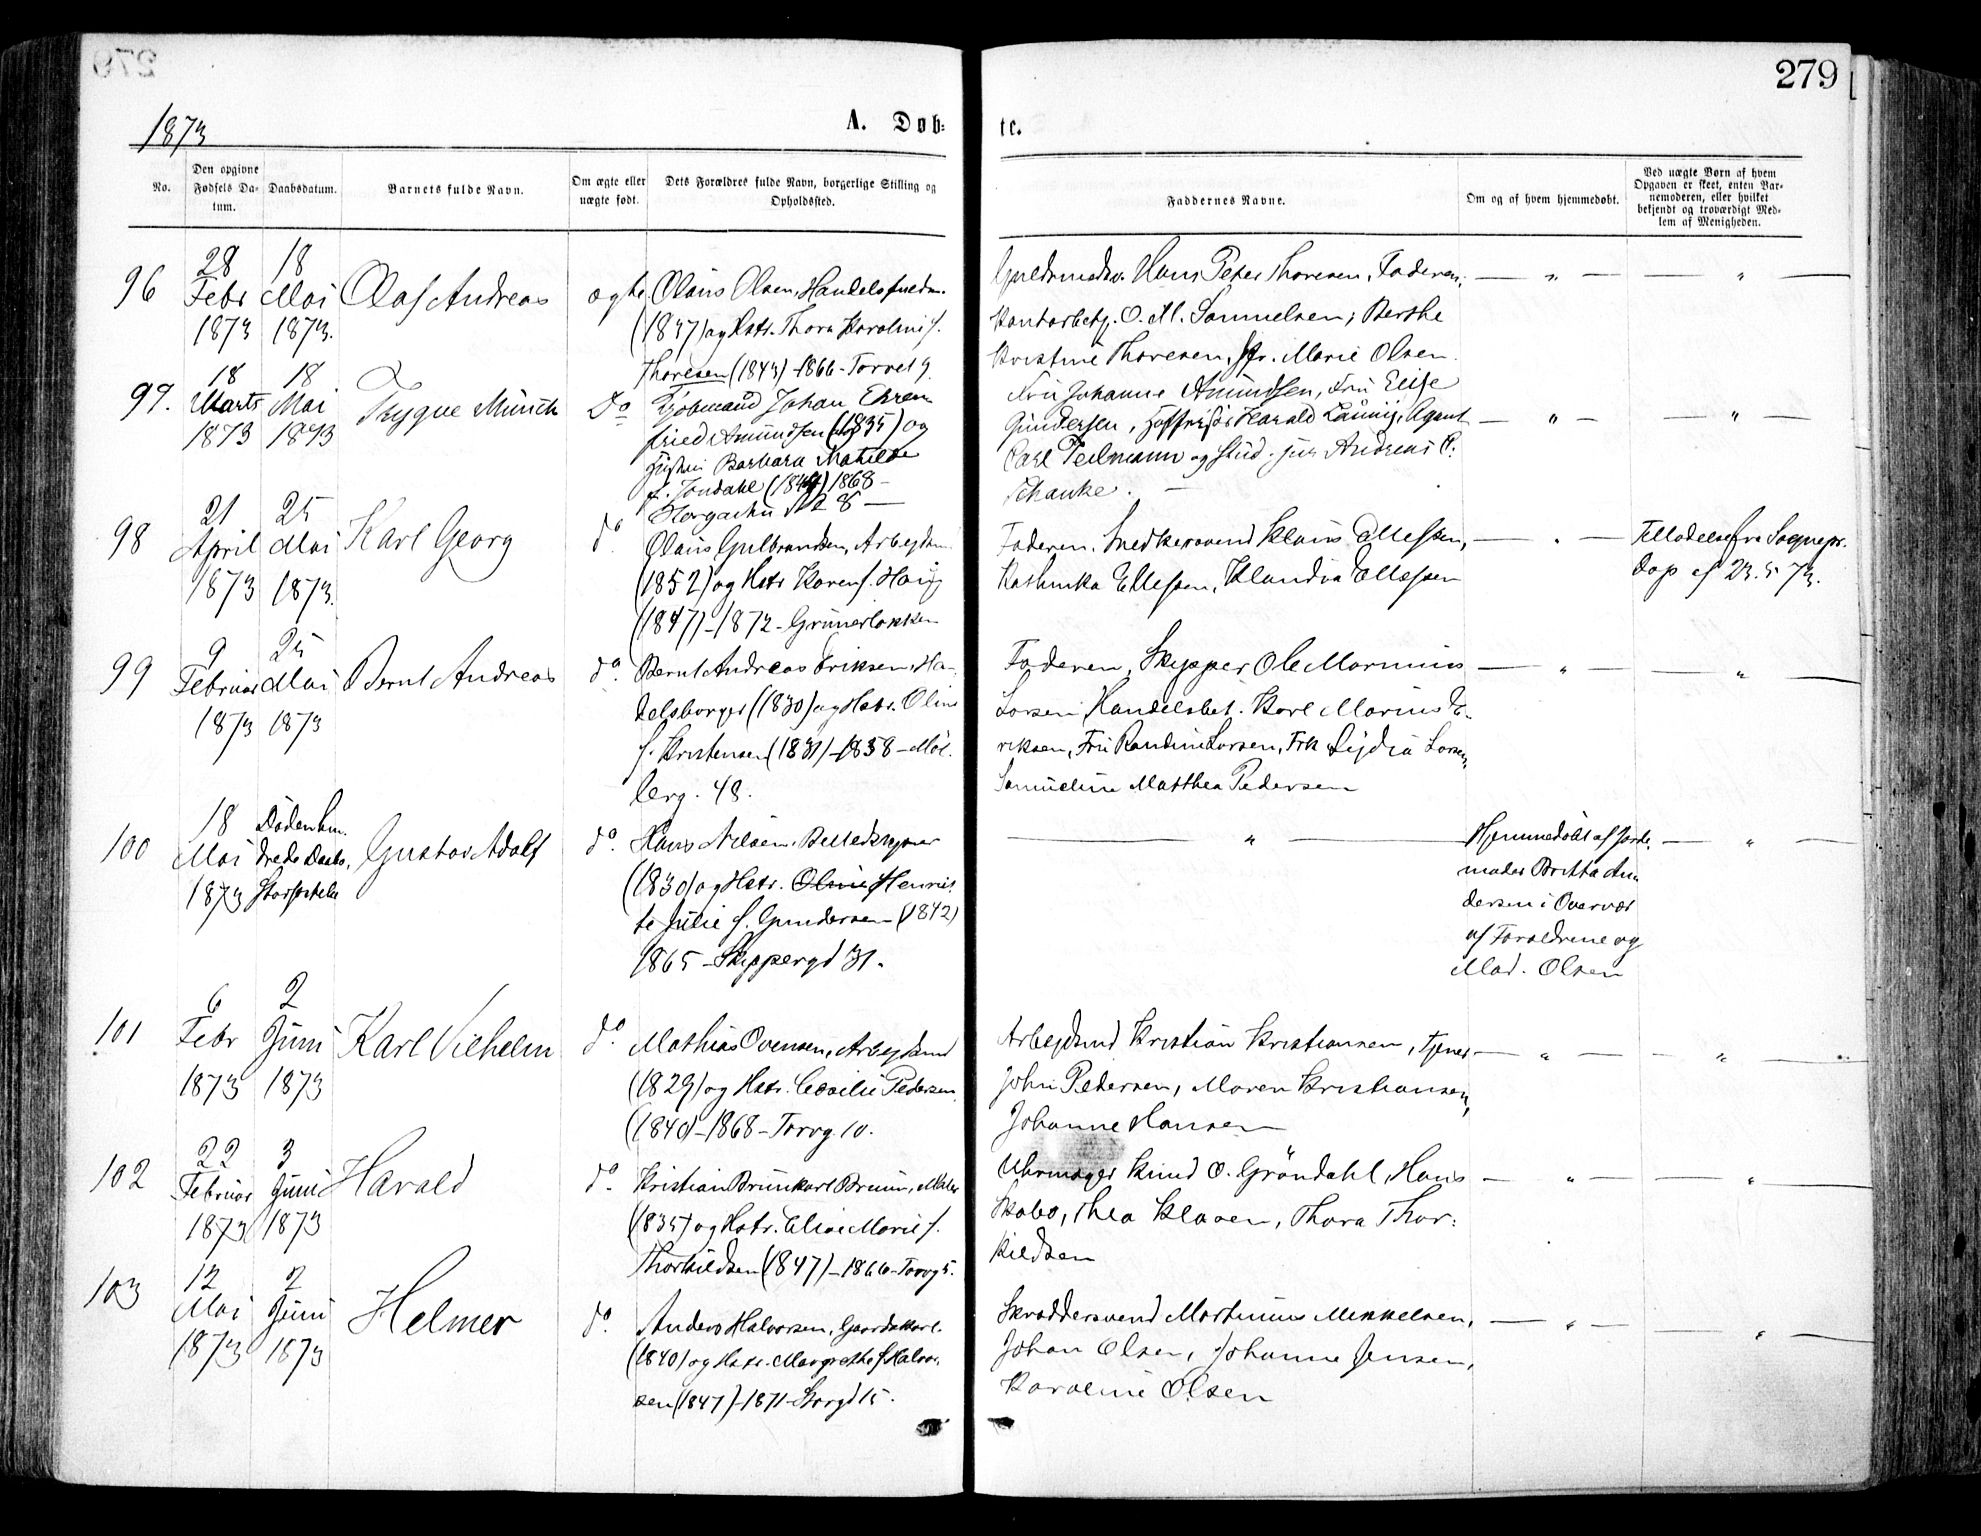 279
1873
A. Døb-
te.
No.
Den opgivne Fødsels Da-tum.
Daabsdatum.
Barnets fulde Navn.
Om ægte eller uægte født.
Dets Forældres fulde Navn, borgerlige Stilling og Opholdssted.
Faddernes Navne.
Om og af hvem hjemmedøbt.
Ved uægte Børn af hvem Opgaven er skeet, enten Bar-nemoderen, eller hvilket bekjendt og troværdigt Med-lem af Menigheden.
96
28 Febr 1873
18 Mai 1873.
Olaf Andreas
ægte
Olaus Olsen, Handelsfuldm.
(1837) og Hstr. Thora Karoline f.
Thoresen (1843) - 1866 - Torvet 9.
Guldsmedsv. Hans Peter Thoresen, Faderen,
Kontorbetj. O. M. Samuelsen; Berthe
Kristine Thoresen, Marie Olsen.
97.
18 Marts 1873
18 Mai 1873
Trygve Münch
Do
Kjøbmand Johan Ehren
fried Amundsen (1835) og
Hustru Barbara Matilde
f. Jondahl 1868 -
8 —
Fru Johanne Amundsen, Fru Elise
Gundersen, Harald Agent
Carl Teilmann og stud. jur Andreas C.
Schanke. —
98
21 April 1873
25 Mai 1873.
Karl Georg
do
Olaus Gulbrandsen, Arbejdsm
(1852) og Hstr Karen f. Haug
(1847) - 1872 - Grünerløkken
Faderen, Snedkersvend Klaus Ellefsen,
Kathinka Ellefsen, Klaudia Ellefsen
Tilladelse fra Sognepr.
Dop af 23.5.73.
99
9 Februar 1873
25 Mai 1873
Bernt Andreas
do.
Bernt Andreas Eriksen, Ha-
delsborger (1830) og Hstr. Oline
f. Kristensen (1831) - 1858 - Møl.
lerg. 48.
Faderen, Skipper Ole Marinius
Larsen, Handelsbet. Karl Marius E-
riksen, Fru Randine Larsen, Frk Lydia Larsen,
Samueline Matthea Pedersen
100
18 Mai 1873
Døden hin.
drede Daabs.
Gustav Adolf
do
Hans Nilsen, Billedskjærer
(1830) og Hstr. Oline Henriet
te Julie f. Gundersen (1842)
1865 - Skippergd 31.
Hjemmedøbt af Jorde.
moder Britta An
dersen i Overvær
af Forældrene og
Mad. Olsen
101
6 Febr 1873
2 Juni 1873
Karl Vilhelm
do
Mathias Ovensen, Arbejdsmd
(1829) og Hstr. Cecilie Pedersen
(1840) - 1868 - Torvg. 10.
Arbejdsmd Kristian Kristiansen, Tjener
John Pedersen, Maren Kristiansen,
Johanne Hansen
102
22 Februar 1873
3 Juni 1873
Harald
do.
Kristian Brünkarl Bruun, Maler
(1835) og Hstr. Elise Marie f.
Thorkildsen (1847) - 1866 - Torvg 5.
Uhrmager Knud O. Gröndahl, Hans
Skabo, Thea Klaven, Thora Thor-
kildsen
103
12 Mai 1873
2 Juni 1873
Helmer
do.
Anders Halvorsen, Gaardskarl.
(1840) og Hstr. Margrethe f. Halvor
sen (1847) - 1871 - Storgd 15.
Skræddersvend Martinius Mikkelsen,
Johan Olsen, Johanne Jensen,
Karoline Olsen